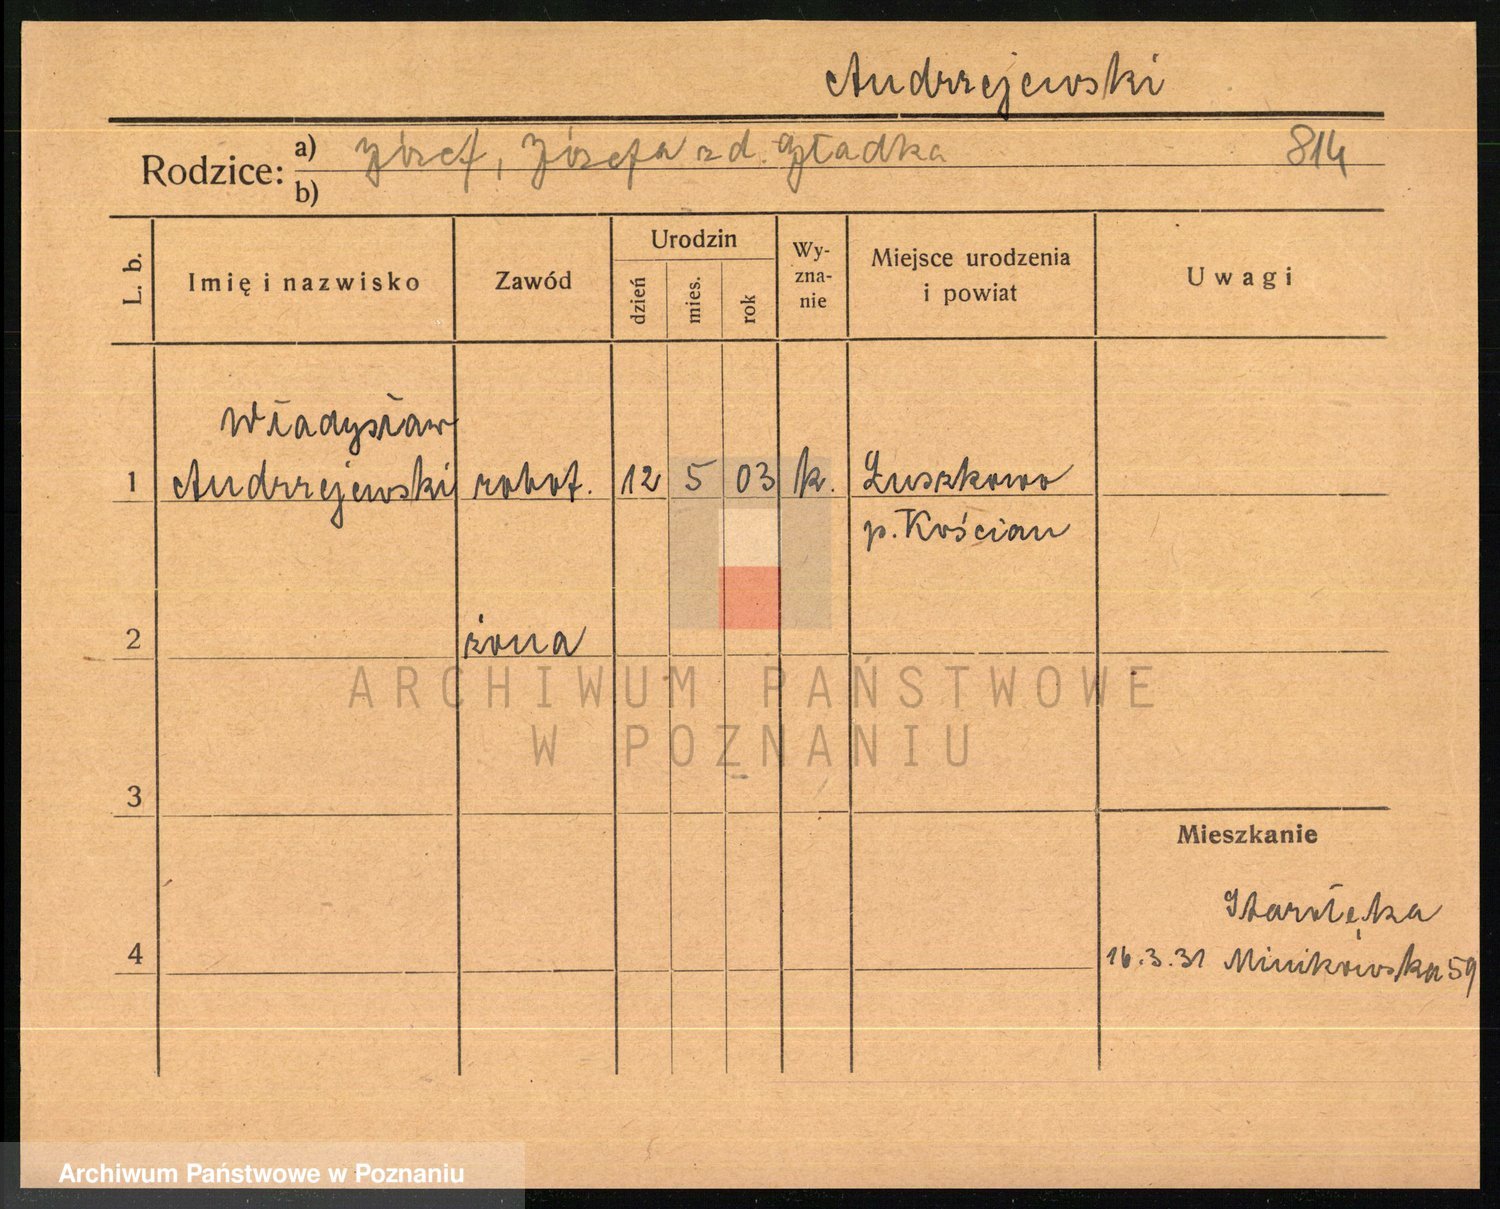 Andrzejewski
Rodzice: a) Józef, Józefa z d. Gładka 814
b)
L. b. Imię i nazwisko Zawód Urodzin dzień mies. rok Wy-zna-nie Miejsce urodzenia i powiat Uwagi
Władysław
1 Andrzejewski robot. 12 5 03 k. Łuszkowo
p. Kościan
2 żona
ARCHIWUM PAŃSTWOWE
W POZNANIU
3
Mieszkanie
Starołęka
4 16.3.31 Minikowska 59
Archiwum Państwowe w Poznaniu